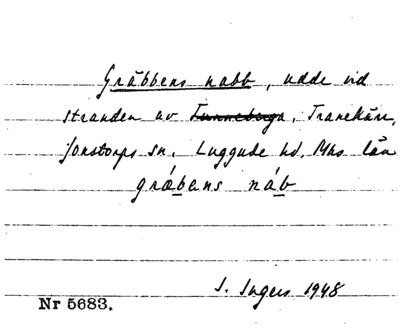 Gråbbens nabb, udde vid
stranden av Tunneberga, Tranekärr,
Jonstorps sn. Luggude hd. Mhs län
gråbens náb
I. Ingers 1948
Nr 5683.